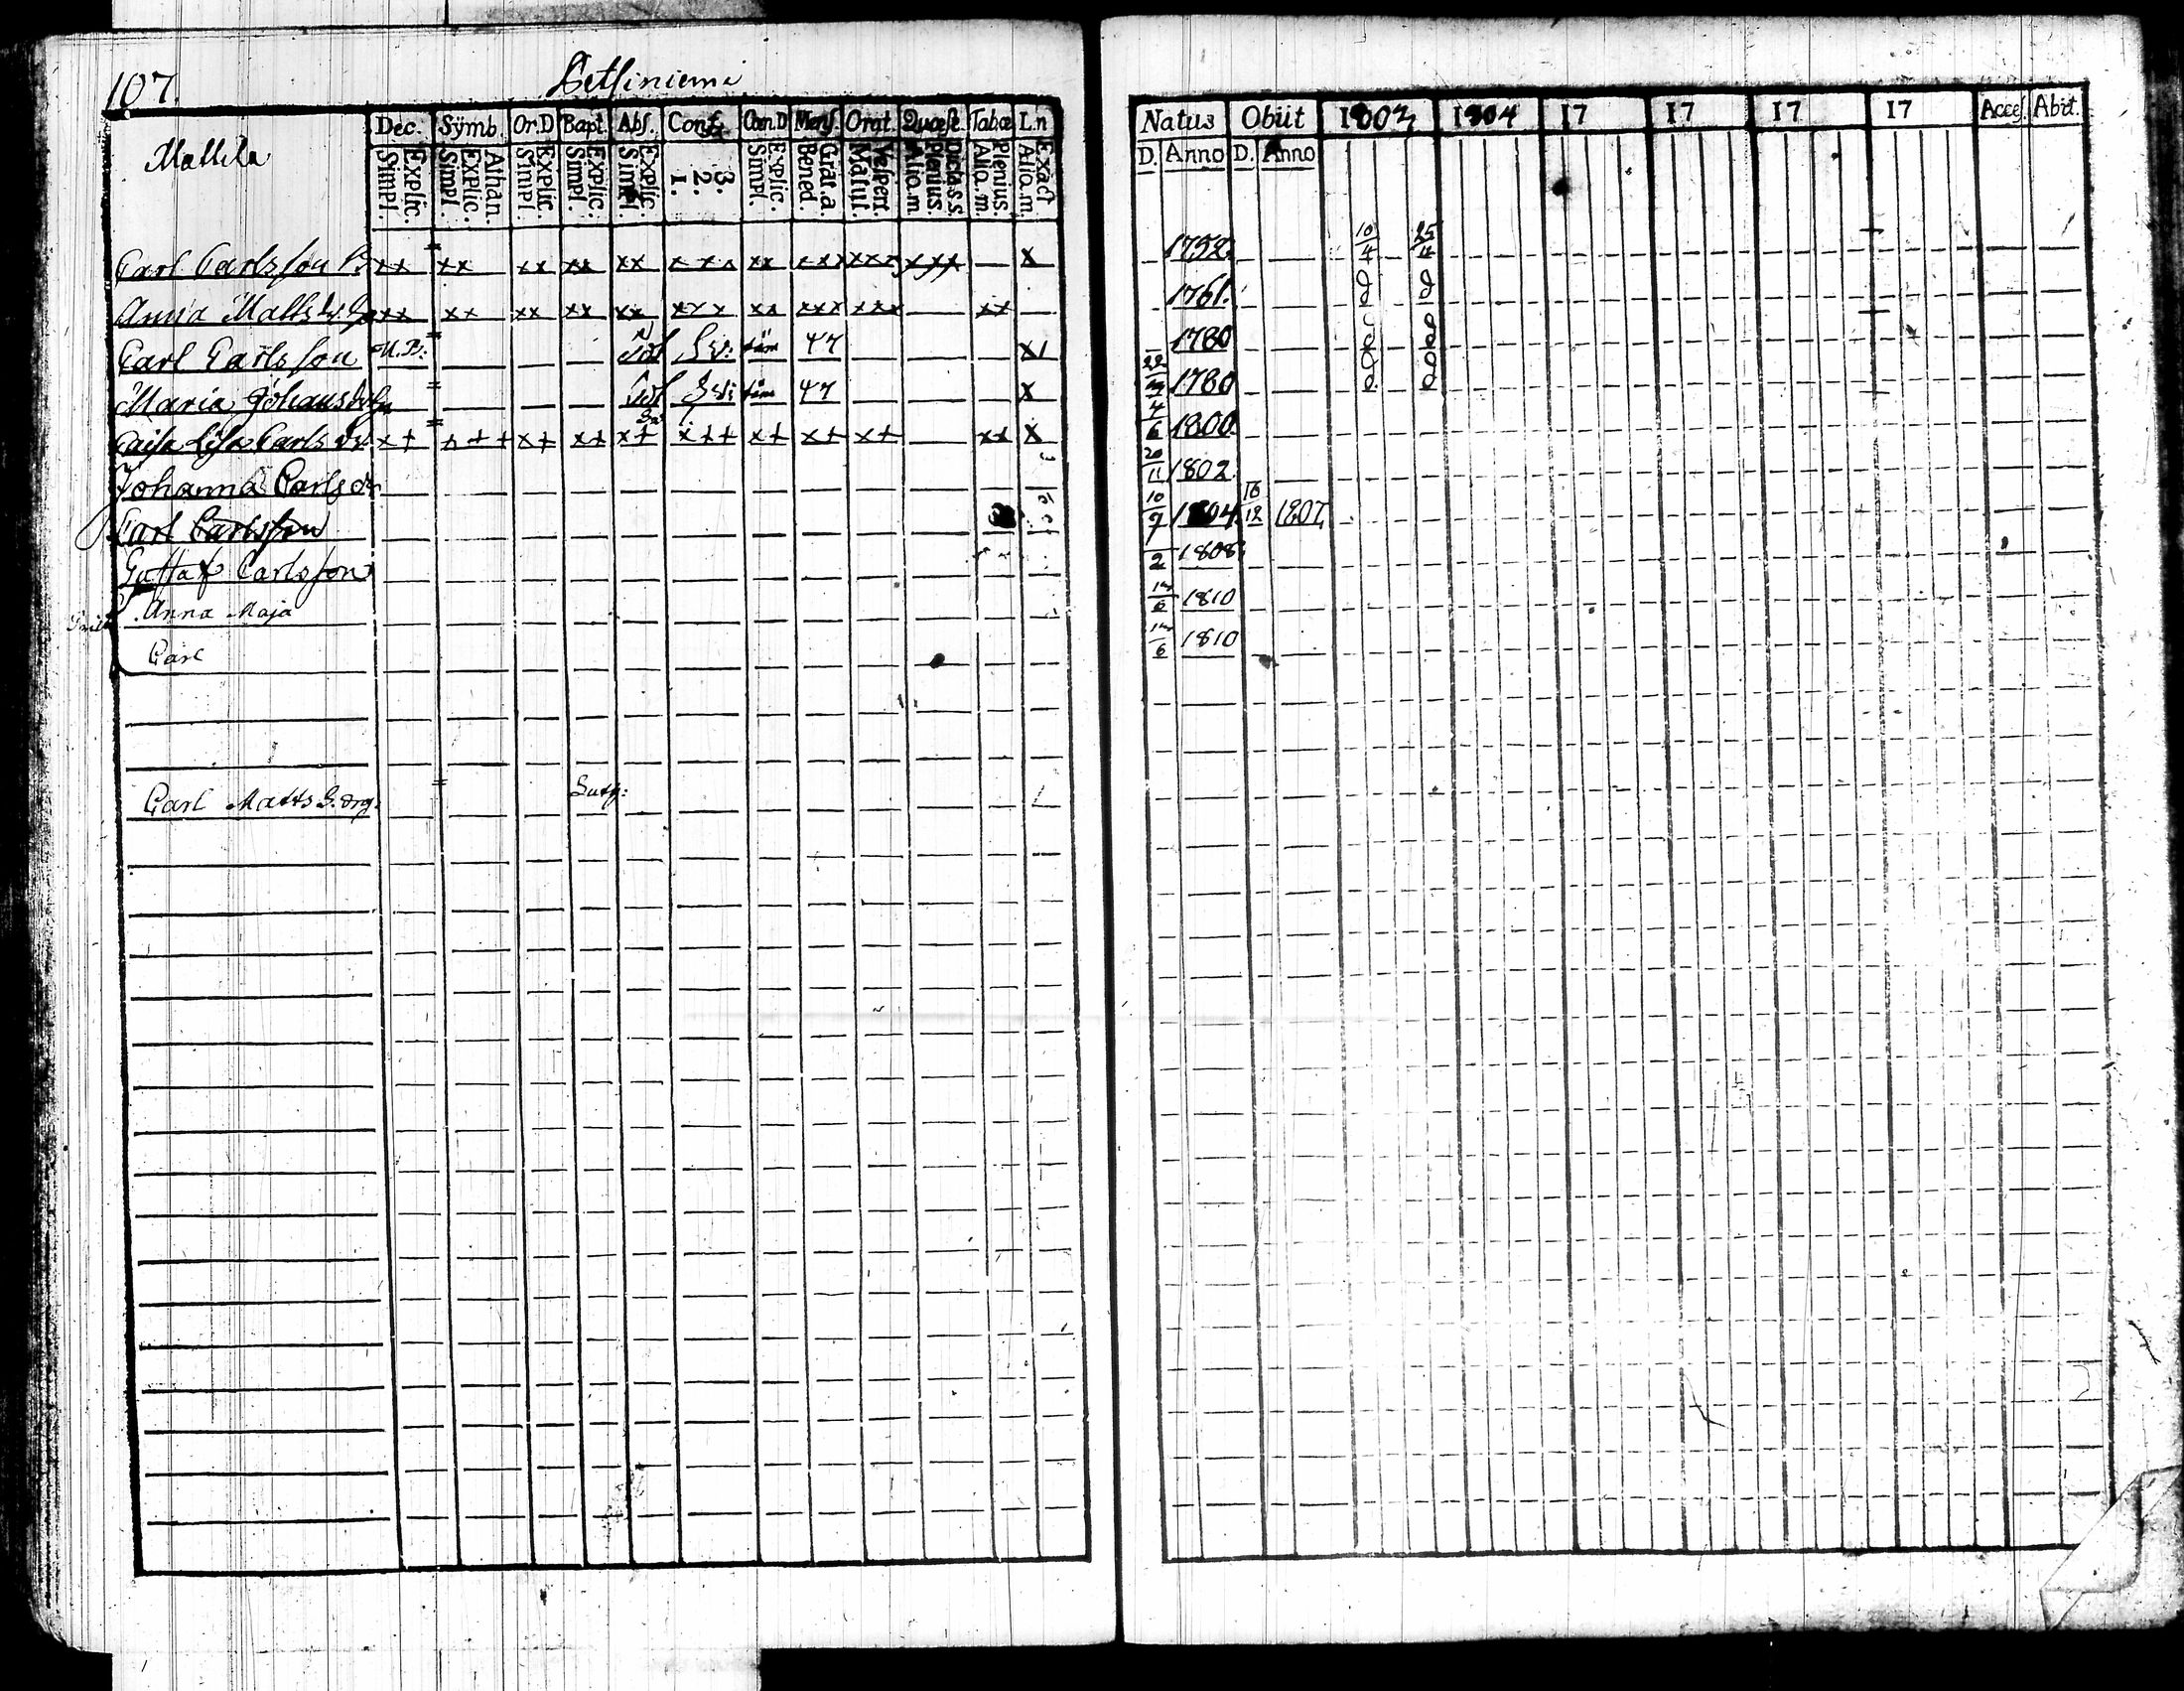 107.
Mattila
Dec. Symb. Or.D Bapt. Abs. Conf. Cœn.D Mens. Orat. Quæst. Tabœ L.n
Explic. Simpl. Athan. Explic. Simpl. Explic. Simpl. Explic. Simpl. Explic. Simpl. 3. 2. 1. Explic. Simpl. Grat. a. Bened. Vespert. Matut. Dicta s.s. Plenius. Alio. m. Plenius. Alio. m. Exact Alio. m.
Carl Carlsson xx xx xx xx xx xxx xx xxx xxx xxx x
Anna Matts dr. xx xx xx xx xx xxx xx xxx xxx xx
Carl Carlsson N.B. 47 x
Maria Johans dr 47 x
Caisa Lisa Carls dr. x+ x++ x+ x+ x+ x++ x+ x+ x+ xx x
Johanna Carls dr
Carl Carlsson
Gustaf Carlsson
Anna Maja
Carl
Carl Matts
Natus Obiit 1803 1804 17 17 17 17 Acces. Abiit.
D. Anno D. Anno
1752. 10/4 25/4
1761.
1780
22/3 1780
4/6 1800.
20/11 1802.
10/9 1804. 16/12 1807
2 1808
6 1810
6 1810